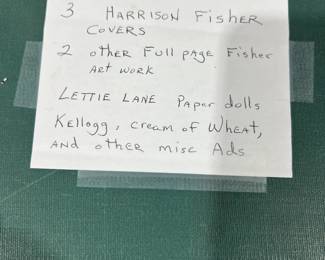 3 HARRISON FISHER
COVERS
2 other Full page Fisher
ART WORK
LETTIE LANE Paper dolls
Kellogg, cream of WHEAT,
AND other misc Ads